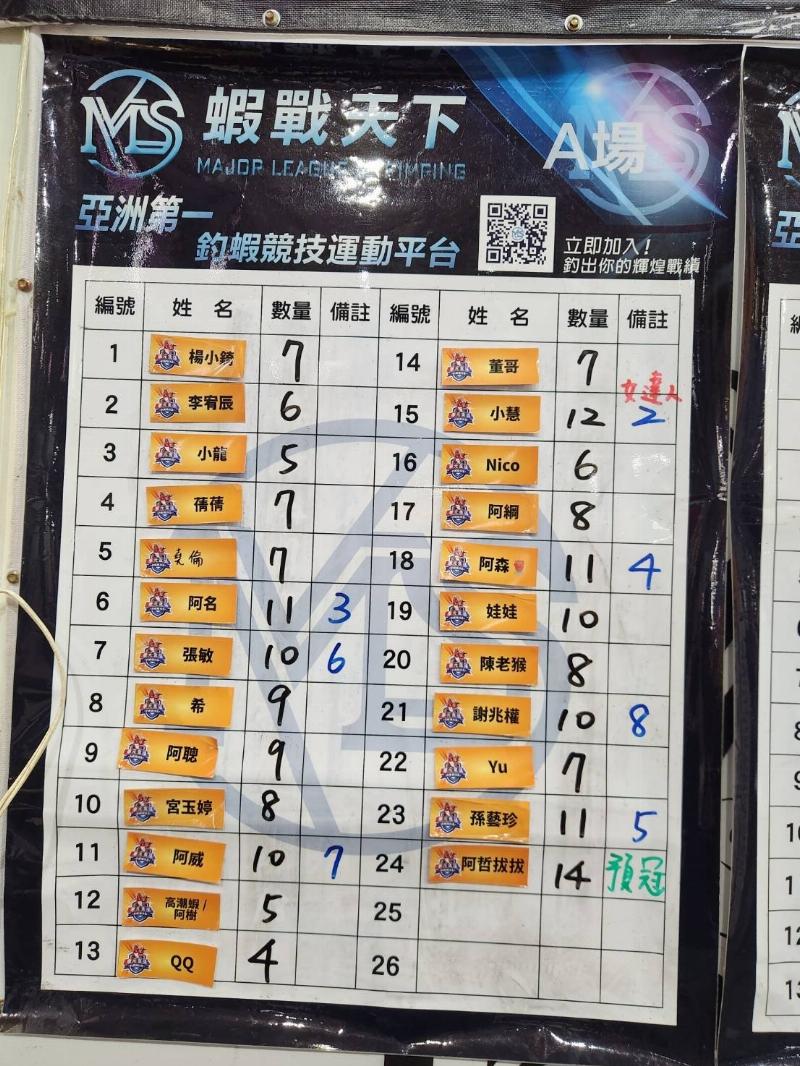 MLS 蝦戰天下
MAJOR LEAGUE SHRIMPING
A場
亞洲第一
釣蝦競技運動平台
立即加入!
釣出你的輝煌戰績
編號 姓名 數量 備註 編號 姓名 數量 備註
1 楊小錡 7 14 董哥 7
2 李宥辰 6 15 小慧 12 女達人 2
3 小龍 5 16 Nico 6
4 蒨蒨 7 17 阿綱 8
5 貞倫 7 18 阿森 11 4
6 阿名 11 3 19 娃娃 10
7 張敏 10 6 20 陳老猴 8
8 希 9 21 謝兆權 10 8
9 阿聰 9 22 Yu 7
10 宮玉婷 8 23 孫藝珍 11 5
11 阿威 10 7 24 阿哲拔拔 14 預冠
12 高潮蝦/阿樹 5 25
13 QQ 4 26